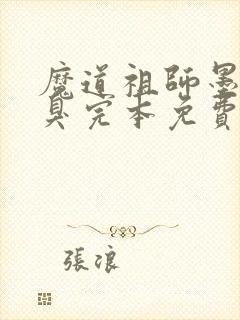 魔道祖師墨
臭完本免費
張浪